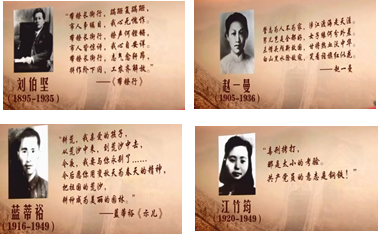 "带镣长街行，蹒跚复蹒跚，
市人争瞩目，我心无愧怍。
带镣长街行，镣声何铿锵，
市人皆惊讶，我心自安详。
带镣长街行，志气愈轩昂，
拼作阶下囚，工农齐解放。"
——《带镣行》
刘伯坚
(1895-1935)
誓志为人不为家，涉江渡海走天涯。
男儿岂是全都好，女子缘何分外差？
未惜头颅新故国，甘将热血沃中华。
白山黑水除敌寇，笑看旌旗红似花。
——赵一曼
赵一曼
(1905-1936)
"耕荒，我亲爱的孩子，
从荒沙中来，到荒沙中去。
今夜，我要与你永别了……
今后愿你用变秋天为春天的精神，
把祖国的荒沙，
耕种成为美丽的园林。"
——蓝蒂裕《示儿》
蓝蒂裕
(1916-1949)
"毒刑拷打，
那是太小的考验。
共产党员的意志是钢铁！"
江竹筠
(1920-1949)